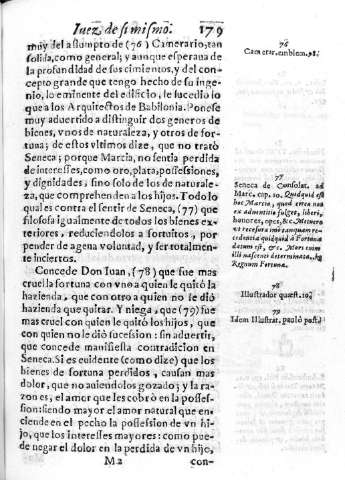 Iuez de si mismo. 179
muy del assumpto de (76) Camerario; tan
solida, como general; y aunque esperaua de
la profundidad de sus cimientos, y del con-
cepto grande que tengo hecho de su inge-
nio, lo eminente del edificio, le sucedio lo
que a los Arquitectos de Babilonia. Ponese
muy aduertido a distinguir dos generos de
bienes, vnos de naturaleza, y otros de for-
tuna; de estos vltimos dize, que no tratò
Seneca; porque Marcia, no sentia perdida
de interesses, como oro, plata, possessiones,
y dignidades, sino solo de los de naturale-
za, que comprehenden a los hijos. Todo lo
qual es contra el sentir de Seneca, (77) que
filosofa igualmente de todos los bienes ex-
teriores, reduciendolos a fortuitos, por
pender de agena voluntad, y ser totalmen-
te inciertos.
Concede Don Iuan, (78) que fue mas
cruel la fortuna con vno a quien le quitò la
hazienda, que con otro a quien no le diò
hazienda que quitar. Y niega, que (79) fue
mas cruel con quien le quitò los hijos, que
con quien no le diò sucession: sin aduertir,
que concede manifiesta contradicion en
Seneca. Si es euidente (como dize) que los
bienes de fortuna perdidos, causan mas
dolor, que no auiendolos gozado; y la ra-
zon es, el amor que les cobrò en la posses-
sion: siendo mayor el amor natural que en-
ciende en el pecho la possession de vn hi-
jo, que los interesses mayores: como pue-
de negar el dolor en la perdida de vn hijo,
M 2 con-
76
Camerar. emblem. 91.
77
Seneca de Consolat. ad
Marc. cap. 10. Quidquid est
hoc Marcia, quod circa nos
ex aduentitio fulget, liberi,
honores, opes, &c.
datum est, &c. Mors enim
illi nascenti determinata,
Regnum Fortunæ.
78
Illustrador quæst. 10.
79
Idem Illustrat. paulò post.